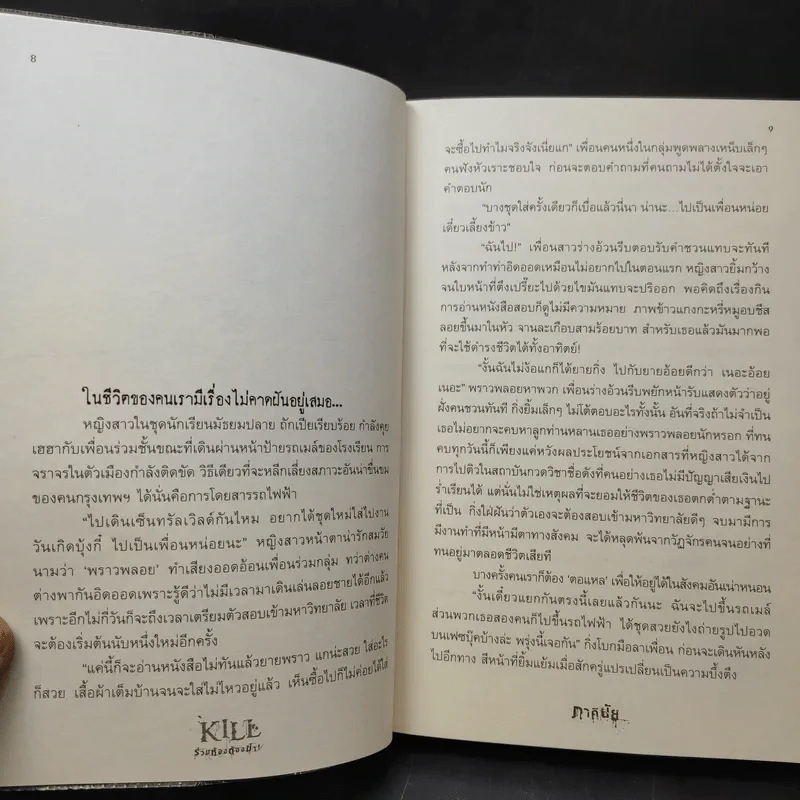 8
ในชีวิตของคนเรามีเรื่องไม่คาดฝันอยู่เสมอ...
หญิงสาวในชุดนักเรียนมัธยมปลาย ถักเปียเรียบร้อย กำลังคุย
เฮฮากับเพื่อนร่วมชั้นขณะที่เดินผ่านหน้าป้ายรถเมล์ของโรงเรียน การ
จราจรในตัวเมืองกำลังติดขัด วิธีเดียวที่จะหลีกเลี่ยงสภาวะอันน่าขื่นขม
ของคนกรุงเทพฯ ได้นั่นคือการโดยสารรถไฟฟ้า
“ไปเดินเซ็นทรัลเวิลด์กันไหม อยากได้ชุดใหม่ใส่ไปงาน
วันเกิดบุ้งกี๋ ไปเป็นเพื่อนหน่อยนะ” หญิงสาวหน้าตาน่ารักสมวัย
นามว่า ‘พราวพลอย’ ทำเสียงออดอ้อนเพื่อนร่วมกลุ่ม ทว่าต่างคน
ต่างพากันอิดออดเพราะรู้ดีว่าไม่มีเวลามาเดินเล่นลอยชายได้อีกแล้ว
เพราะอีกไม่กี่วันก็จะถึงเวลาเตรียมตัวสอบเข้ามหาวิทยาลัย เวลาที่ชีวิต
จะต้องเริ่มต้นนับหนึ่งใหม่อีกครั้ง
“แค่นี้ก็จะอ่านหนังสือไม่ทันแล้วยายพราว แกน่ะสวย ใส่อะไร
ก็สวย เสื้อผ้าเต็มบ้านจนจะใส่ไม่ไหวอยู่แล้ว เห็นซื้อไปก็ไม่ค่อยได้ใส่
KILL
ร่วมห้องต้องฆ่า!
9
จะซื้อไปทำไมจริงจังเนี่ยแก” เพื่อนคนหนึ่งในกลุ่มพูดพลางเหน็บเล็กๆ
คนฟังหัวเราะชอบใจ ก่อนจะตอบคำถามที่คนถามไม่ได้ตั้งใจจะเอา
คำตอบนัก
“บางชุดใส่ครั้งเดียวก็เบื่อแล้วนี่นา น่านะ...ไปเป็นเพื่อนหน่อย
เดี๋ยวเลี้ยงข้าว”
“ฉันไป!” เพื่อนสาวร่างอ้วนรีบตอบรับคำชวนแทบจะทันที
หลังจากทำท่าอิดออดเหมือนไม่อยากไปในตอนแรก หญิงสาวยิ้มกว้าง
จนใบหน้าที่ตึงเปรี๊ยะไปด้วยไขมันแทบจะปริออก พอคิดถึงเรื่องกิน
การอ่านหนังสือสอบก็ดูไม่มีความหมาย ภาพข้าวแกงกะหรี่หมูอบชีส
ลอยขึ้นมาในหัว จานละเกือบสามร้อยบาท สำหรับเธอแล้วมันมากพอ
ที่จะใช้ดำรงชีวิตได้ทั้งอาทิตย์!
“งั้นฉันไม่ง้อแกก็ได้ยายกิ่ง ไปกับยายอ้อยดีกว่า เนอะอ้อย
เนอะ” พราวพลอยหาพวก เพื่อนร่างอ้วนรีบพยักหน้ารับแสดงตัวว่าอยู่
ฝั่งคนชวนทันที กิ่งยิ้มเล็กๆ ไม่ได้ตอบอะไรทั้งนั้น อันที่จริงถ้าไม่จำเป็น
เธอไม่อยากจะคบหาลูกท่านหลานเธออย่างพราวพลอยนักหรอก ที่ทน
คบทุกวันนี้ก็เพียงแค่หวังผลประโยชน์จากเอกสารที่หญิงสาวได้จาก
การไปติวในสถาบันกวดวิชาชื่อดังที่คนอย่างเธอไม่มีปัญญาเสียเงินไป
ร่ำเรียนได้ แต่นั่นไม่ใช่เหตุผลที่จะยอมให้ชีวิตของเธอตกต่ำตามฐานะ
ที่เป็น กิ่งใฝ่ฝันว่าตัวเองจะต้องสอบเข้ามหาวิทยาลัยดีๆ จบมามีการ
มีงานทำที่มีหน้ามีตาทางสังคม จะได้หลุดพ้นจากวัฏจักรคนจนอย่างที่
ทนอยู่มาตลอดชีวิตเสียที
บางครั้งคนเราก็ต้อง ‘ตอแหล’ เพื่อให้อยู่ได้ในสังคมอันเน่าหนอน
“งั้นเดี๋ยวแยกกันตรงนี้เลยแล้วกันนะ ฉันจะไปขึ้นรถเมล์
ส่วนพวกเธอสองคนก็ไปขึ้นรถไฟฟ้า ได้ชุดสวยยังไงถ่ายรูปไปอวด
บนเฟซบุ๊คบ้างล่ะ พรุ่งนี้เจอกัน” กิ่งโบกมือลาเพื่อน ก่อนจะเดินหันหลัง
ไปอีกทาง สีหน้าที่ยิ้มแย้มเมื่อสักครู่แปรเปลี่ยนเป็นความบึ้งตึง
ภาคินัย